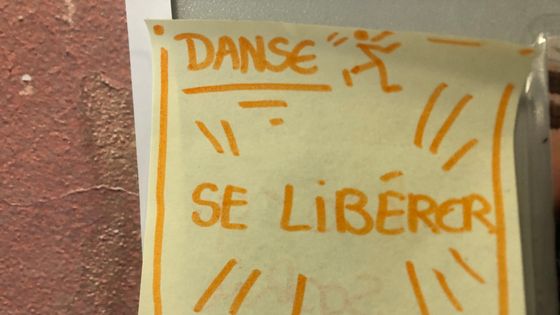 DANSE
SE LIBÉRER